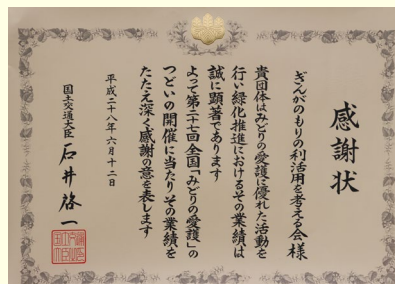 感謝状
ぎんがのもりの利活用を考える会様
貴団体はみどりの愛護に優れた活動を
行い緑化推進におけるその業績は
誠に顕著であります
よって第二十七回全国「みどりの愛護」の
つどいの開催に当たりその業績を
たたえ深く感謝の意を表します
平成二十八年六月十二日
国土交通大臣 石井啓一